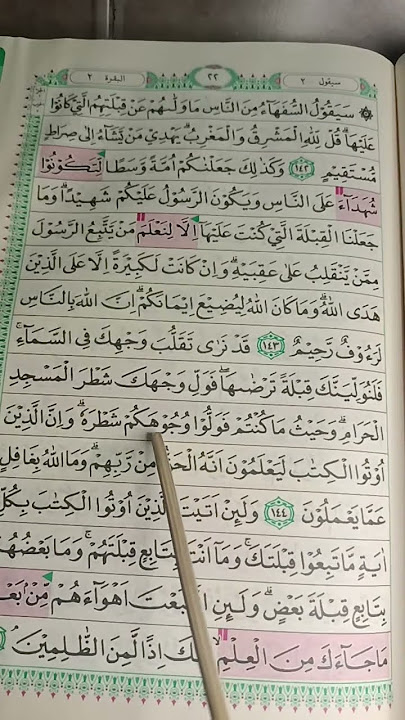 سيقول ٢ ٢٢ البقرة ٢
سَيَقُوْلُ السُّفَهَآءُ مِنَ النَّاسِ مَا وَلّٰىهُمْ عَنْ قِبْلَتِهِمُ الَّتِيْ كَانُوْا
عَلَيْهَاۗ قُلْ لِّلّٰهِ الْمَشْرِقُ وَالْمَغْرِبُۗ يَهْدِيْ مَنْ يَّشَاۤءُ اِلٰى صِرَاطٍ
مُّسْتَقِيْمٍ ١٤٢ وَكَذٰلِكَ جَعَلْنٰكُمْ اُمَّةً وَّسَطًا لِّتَكُوْنُوْا
شُهَدَاۤءَ عَلَى النَّاسِ وَيَكُوْنَ الرَّسُوْلُ عَلَيْكُمْ شَهِيْدًاۗ وَمَا
جَعَلْنَا الْقِبْلَةَ الَّتِيْ كُنْتَ عَلَيْهَآ اِلَّا لِنَعْلَمَ مَنْ يَّتَّبِعُ الرَّسُوْلَ
مِمَّنْ يَّنْقَلِبُ عَلٰى عَقِبَيْهِۗ وَاِنْ كَانَتْ لَكَبِيْرَةً اِلَّا عَلَى الَّذِيْنَ
هَدَى اللّٰهُۗ وَمَا كَانَ اللّٰهُ لِيُضِيْعَ اِيْمَانَكُمْۗ اِنَّ اللّٰهَ بِالنَّاسِ
لَرَءُوْفٌ رَّحِيْمٌ ١٤٣ قَدْ نَرٰى تَقَلُّبَ وَجْهِكَ فِى السَّمَاۤءِۚ
فَلَنُوَلِّيَنَّكَ قِبْلَةً تَرْضٰىهَاۖ فَوَلِّ وَجْهَكَ شَطْرَ الْمَسْجِدِ
الْحَرَامِۗ وَحَيْثُ مَا كُنْتُمْ فَوَلُّوْا وُجُوْهَكُمْ شَطْرَهٗۗ وَاِنَّ الَّذِيْنَ
اُوْتُوا الْكِتٰبَ لَيَعْلَمُوْنَ اَنَّهُ مِنْ رَّبِّهِمْۗ وَمَا اللّٰهُ بِغَافِلٍ
عَمَّا يَعْمَلُوْنَ ١٤٤ وَلَىِٕنْ اَتَيْتَ الَّذِيْنَ اُوْتُوا الْكِتٰبَ بِكُلِّ
اٰيَةٍ مَّا تَبِعُوْا قِبْلَتَكَۚ وَمَآ اَنْتَ بِتَابِعٍ قِبْلَتَهُمْۚ وَمَا بَعْضُهُمْ
بِتَابِعٍ قِبْلَةَ بَعْضٍۗ وَلَىِٕنِ اتَّبَعْتَ اَهْوَاۤءَهُمْ مِّنْۢ بَعْدِ
مَا جَاۤءَكَ مِنَ الْعِلْمِ اِذًا لَّمِنَ الظّٰلِمِيْنَ